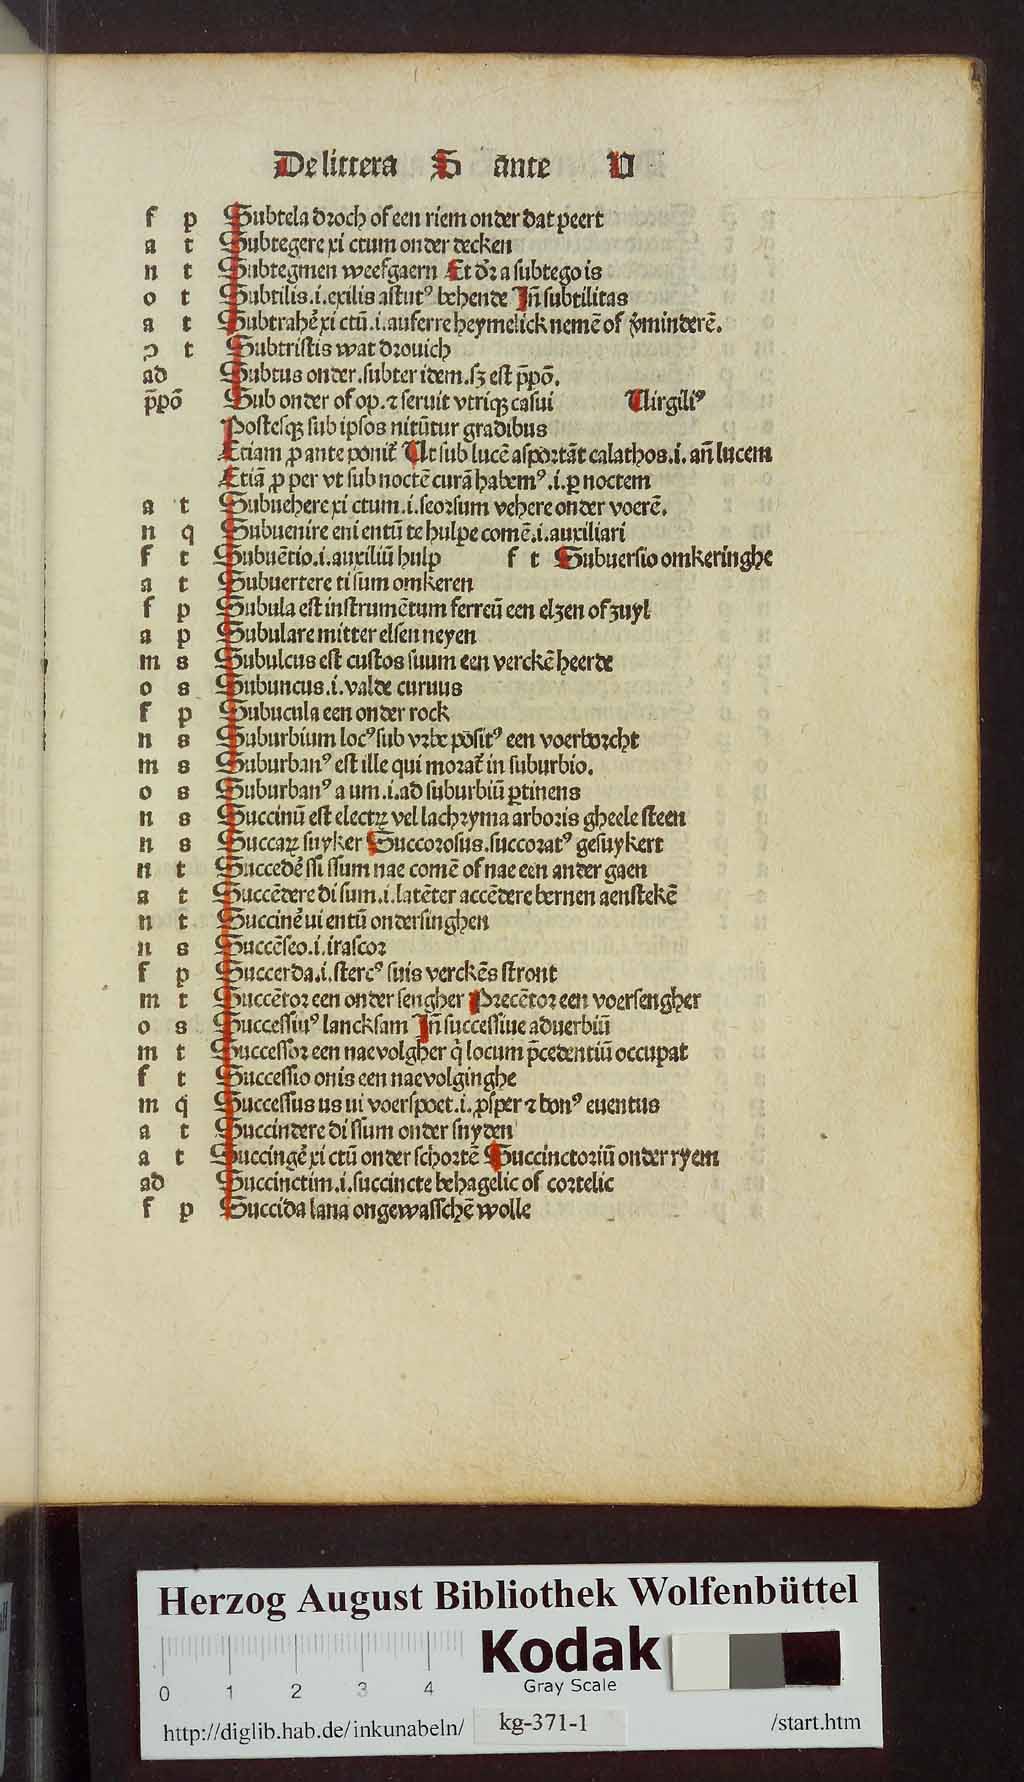 De littera S ante V
f p Subtela droch of een riem onder dat peert
a t Subtegere xi ctum onder decken
n t Subtegmen weefgaern Et dr̄ a subtego is
o t Subtilis .i. exilis astutꝰ behende Jn̄ subtilitas
a t Subtraheř xi ctū .i. auferre heymelick nemē of v̄minderē.
ɔ t Subtristis wat drouich
ad Subtus onder. subter idem. sꝫ est p̄pō.
p̄pō Sub onder of op. ⁊ seruit vtriqꝫ casui Virgiliꝰ
Postesqꝫ sub ipsos nitūtur gradibus
Etiam ꝓ ante ponit̄ Ut sub lucē asportāt calathos .i. an̄ lucem
Etiā ꝓ per vt sub noctē curā habemꝰ .i. ꝑ noctem
a t Subuehere xi ctum .i. seorsum vehere onder voerē.
n q Subuenire eni entū te hulpe comē .i. auxiliari
f t Subuētio .i. auxiliū hulp f t Subuersio omkeringhe
a t Subuertere ti sum omkeren
f p Subula est instrumētum ferreū een elzen of zuyl
a p Subulare mitter elsen neyen
m s Subulcus est custos suum een verckē heerde
o s Subuncus .i. valde curuus
f p Subucula een onder rock
n s Suburbium locꝰ sub vrbe pōsitꝰ een voerborcht
m s Suburbanꝰ est ille qui morat̄ in suburbio.
o s Suburbanꝰ a um .i. ad suburbiū ꝑtinens
n s Succinū est electrꝫ vel lachryma arboris gheele steen
n s Succarꝫ suyker Succorosus. succoratꝰ gesuykert
n t Succedeř ssi ssum nae comē of nae een ander gaen
a t Succēdere di sum .i. latēter accēdere bernen aenstekē
n t Succineř ui entū ondersinghen
n s Succēseo .i. irascor
f p Succerda .i. stercꝰ suis verckēs stront
m t Succētor een onder sengher Precētor een voersengher
o s Successiuꝰ lancksam Jn̄ successiue aduerbiū
m t Successor een naevolgher q̇ locum p̄cedentiū occupat
f t Successio onis een naevolginghe
m q̄ Successus us ui voerspoet .i. ꝓsper ⁊ bonꝰ euentus
a t Succindere di ssum onder snyden
a t Succingeř xi ctū onder schortē Succinctoriū onder ryem
ad Succinctim .i. succincte behagelic of cortelic
f p Succida lana ongewasschē wolle
Herzog August Bibliothek Wolfenbüttel
Kodak
Gray Scale
0 1 2 3 4
http://diglib.hab.de/inkunabeln/ kg-371-1 /start.htm